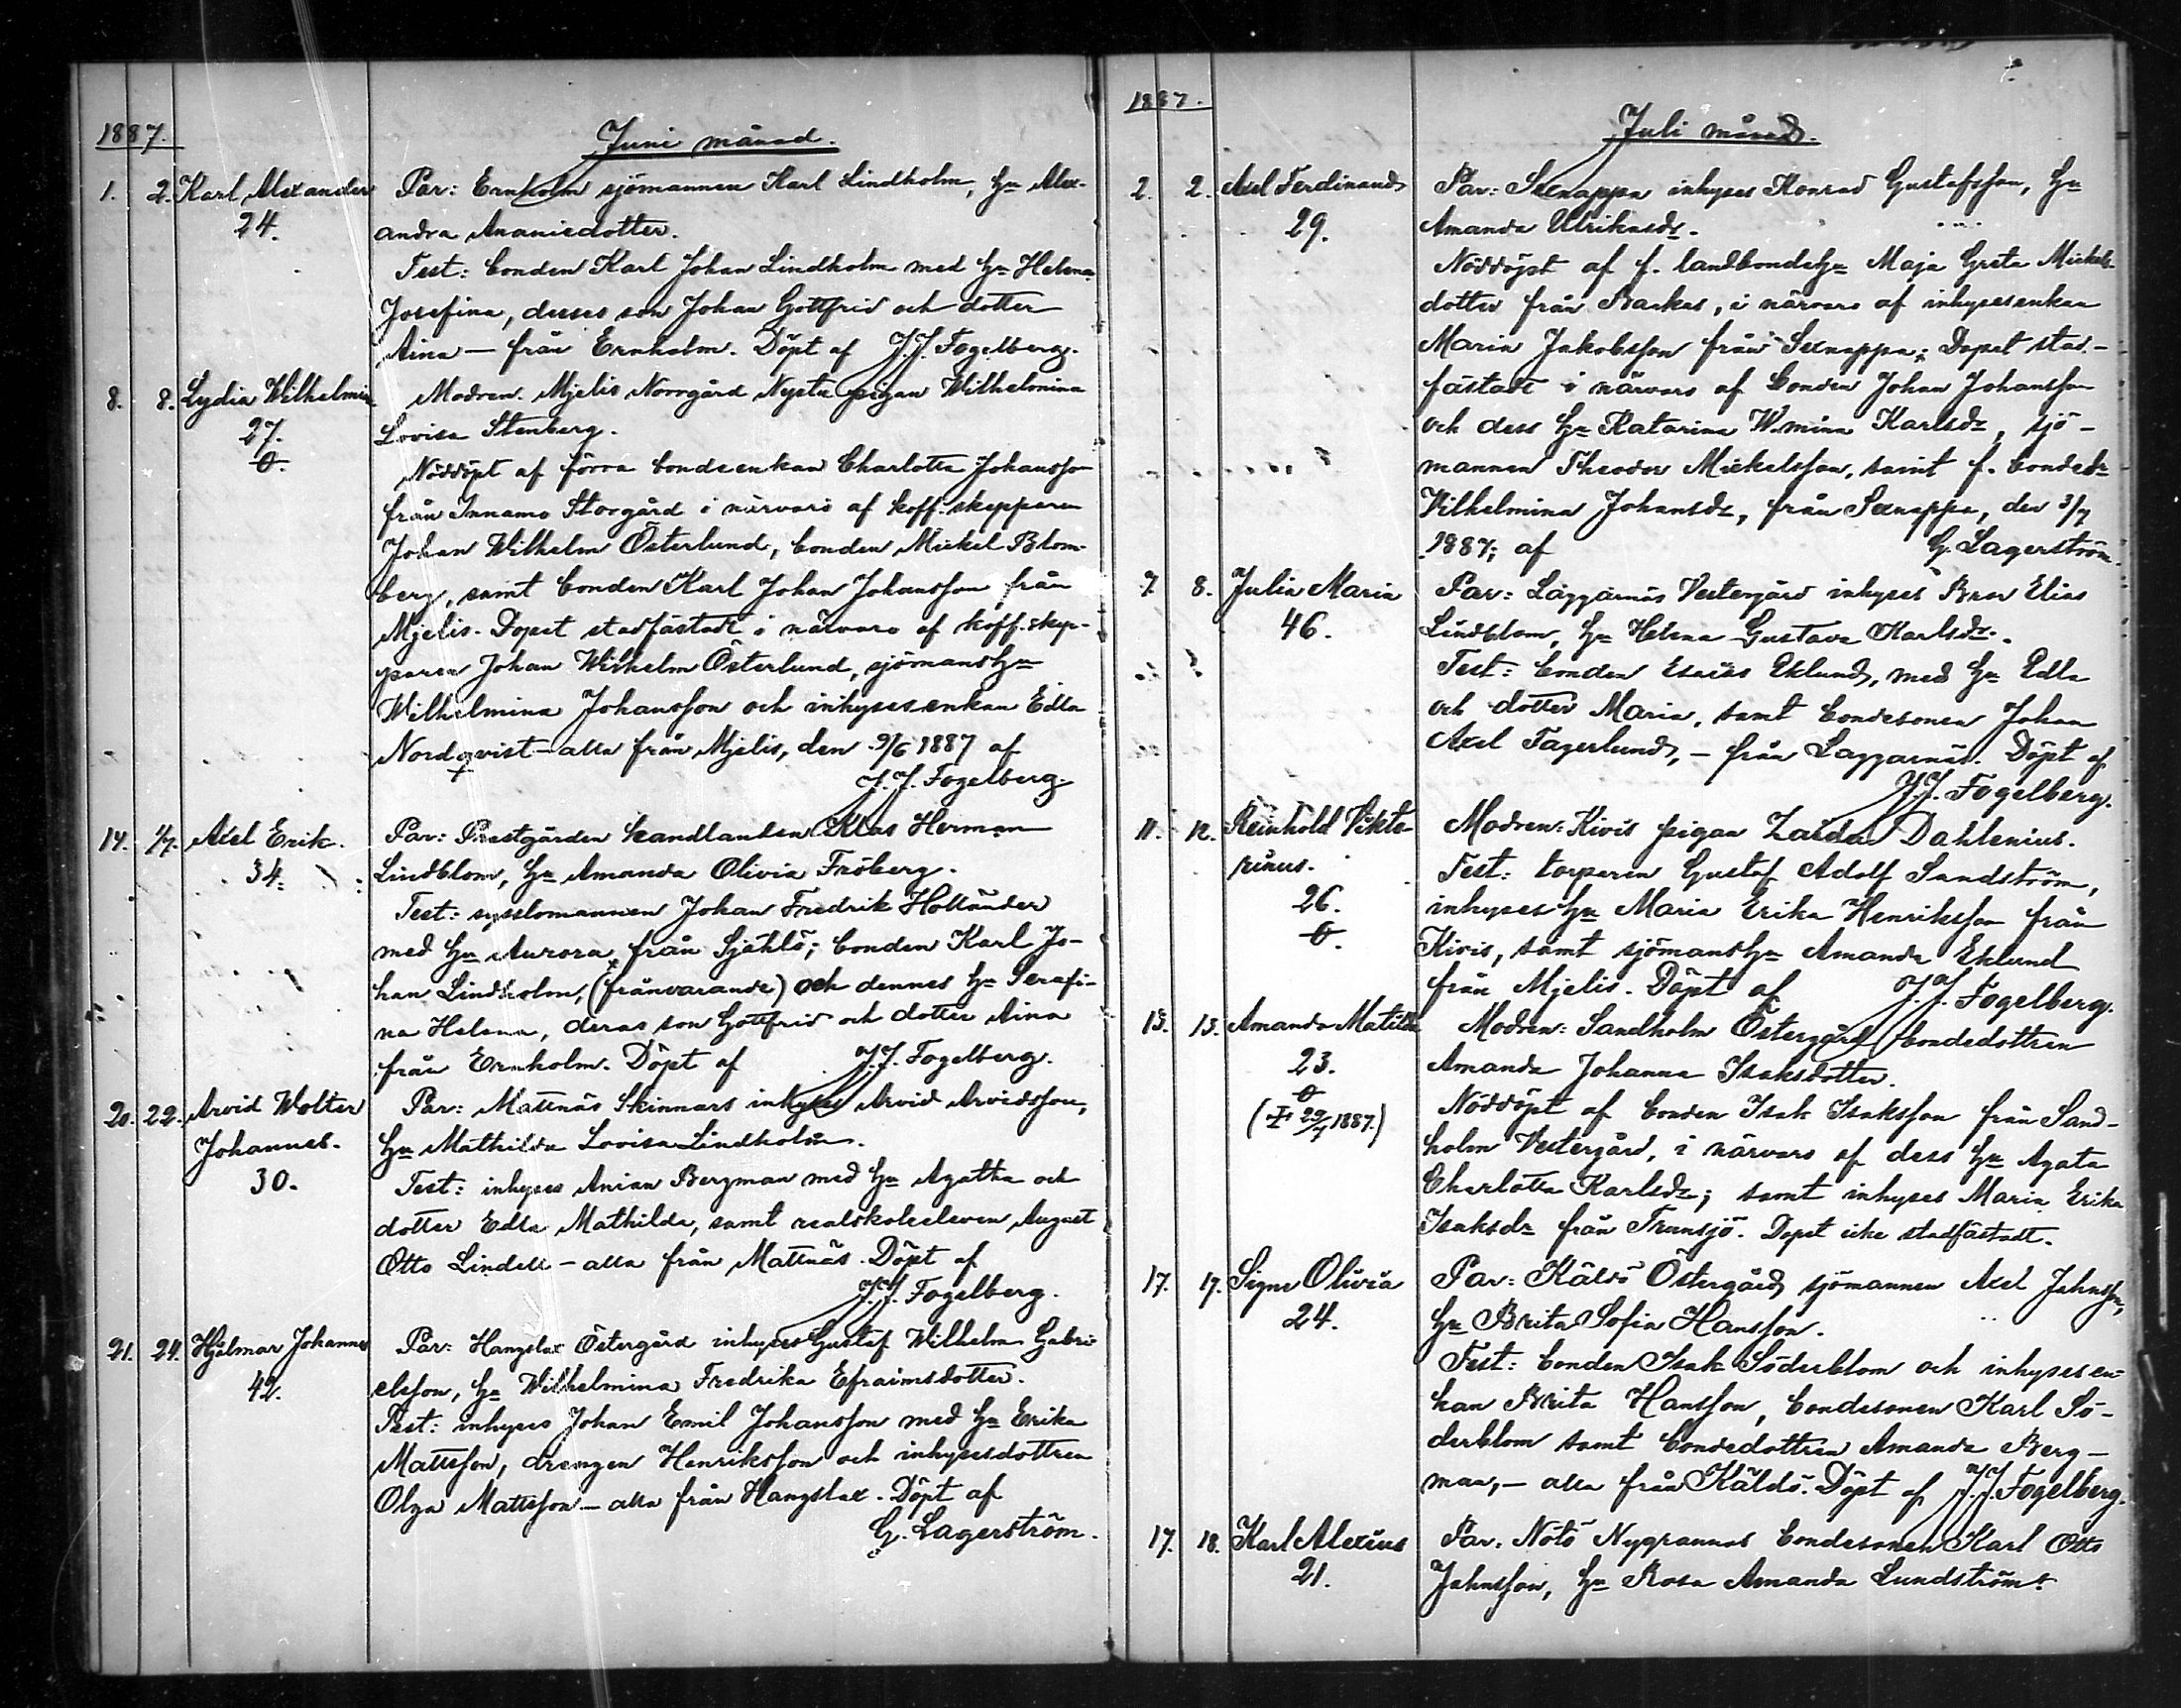 1887.
Juni månad.
1. 2. Karl Alexander
24.
Par: Ernholm sjömannen Karl Lindholm, Hu Alex-
andra Ananiedotter.
Test: bonden Karl Johan Lindholm med Hu Helena
Josefina, desses son Johan Gottfrid och dotter
Aina — från Ernholm. Döpt af J.J. Fogelberg.
8. 8. Lydia Wilhelmin
27.
0.
Modren. Mjelis Norrgård Nysta pigan Wilhelmina
Lovisa Stenberg.
Nöddöpt af förra bondeenkan Charlotta Johansson
från Innamo Storgård i närvaro af koff. skepparen
Johan Wilhelm Österlund, bonden Mickel Blom-
berg, samt bonden Karl Johan Johansson från
Mjelis. Dopet stadfästadt i närvaro af koff. skep-
paren Johan Wilhelm Österlund, sjömanshu
Wilhelmina Johansson och inhysesenkan Edla
Nordqvist — alla från Mjelis, den 9/6 1887 af
J.J. Fogelberg.
14. 1/7. Axel Erik.
34.
Par: Prestgården landtlanden Klas Herman
Lindblom, Hu Amanda Olivia Fröberg.
Test: sysslomannen Johan Fredrik Holländer
med Hu Aurora, från Själlö; bonden Karl Jo-
han Lindholm, (frånvarande) och dennes Hu Serafi-
na Helena, deras son Gottfrid och dotter Aina
från Ernholm. Döpt af J.J. Fogelberg.
20. 22. Arvid Wolter
Johannes.
30.
Par: Mattnäs Skinnars inhyses Arvid Arvidsson,
Hu Mathilda Lovisa Lindholm.
Test: inhyses Anian Bergman med Hu Agatha och
dotter Edla Mathilda, samt realskoleeleven August
Otto Lindell — alla från Mattnäs. Döpt af
J.J. Fogelberg.
21. 24. Hjalmar Johannes
42.
Par: Hangslax Östergård inhyses Gustaf Wilhelm Gabri-
elsson, Hu Wilhelmina Fredrika Efraimsdotter.
Test: inhyses Johan Emil Johansson med Hu Erika
Mattsson, drengen Henriksson och inhysesdottren
Olga Mattsson — alla från Hangslax. Döpt af
G. Lagerström.
1887.
Juli månad.
2. 2. Axel Ferdinand
29.
Par: Sexnappa inhyses Konrad Gustafsson, Hu
Amanda Ulriksdr.
Nöddöpt af f. landbondehu Maja Greta Mickels-
dotter från Backas, i närvaro af inhysesenkan
Maria Jakobsson från Sexnappa; Dopet stad-
fästadt i närvaro af bonden Johan Johansson
och dess Hu Katarina W.mina Karlsdr, sjö-
mannen Theodor Mickelsson, samt f. bondedr
Vilhelmina Johansdr, från Sexnappa, den 3/7
1887; af G. Lagerström.
7. 8. Julia Maria
46.
Par: Läggarnäs Vestergård inhyses Bror Elias
Lindblom, Hu Helena Gustava Karlsdr.
Test: bonden Esaias Eklund, med Hu Edla
och dotter Maria, samt bondesonen Johan
Axel Fagerlund, — från Laggarnäs. Döpt af
J.J. Fogelberg.
11. 12. Reinhold Vikto-
rinus.
26.
0.
Modren: Kivis pigan Zaida Dahlenius.
Test: torparen Gustaf Adolf Sandström,
inhyseshu Maria Erika Henriksson från
Kivis, samt sjömanshu Amanda Eklund
från Mjelis. Döpt af J.J. Fogelberg.
13. 13. Amanda Matilda
23.
0
(† 29/7 1887.)
Modren: Sandholm Östergård bondedottren
Amanda Johanna Isaksdotter.
Nöddöpt af bonden Isak Isaksson från Sand-
holm Vestergård, i närvaro af dess Hu Agata
Charlotta Karlsdr; samt inhyses Maria Erika
Isaksdr från Transjö. Dopet icke stadfästadt.
17. 17. Signe Olivia
24.
Par: Käldö Östergård sjömannen Axel Jahnsson,
Hu Brita Sofia Hansson.
Test: bonden Isak Söderblom och inhysesen-
kan Brita Hansson, bondesonen Karl Sö-
derblom samt bondedottren Amanda Berg-
man, — alla från Käldö. Döpt af J.J. Fogelberg.
17. 18. Karl Alexius
21.
Par. Nötö Nygrannas bondesonen Karl Otto
Jahnsson, Hu Rosa Amanda Lundström.